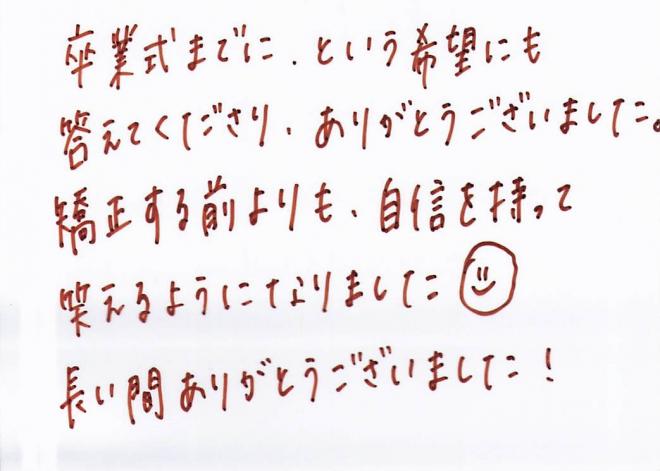 卒業式までに、という希望にも
答えてくださり、ありがとうございました。
矯正する前よりも、自信を持って
笑えるようになりました☺
長い間ありがとうございました!